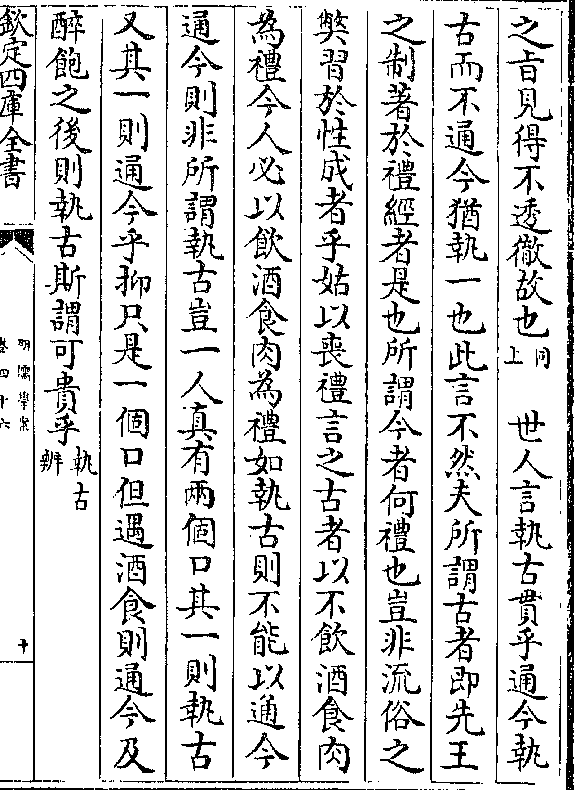 之㫖見得不透徹故也同上　世人言執古貴乎通今執
古而不通今猶執一也此言不然夫所謂古者即先王
之制著於禮經者是也所謂今者何禮也豈非流俗之
獘習於性成者乎姑以喪禮言之古者以不飲酒食肉
為禮今人必以飲酒食肉為禮如執古則不能以通今
通今則非所謂執古豈一人真有兩個口其一則執古
又其一則通今乎抑只是一個口但遇酒食則通今及
醉飽之後則執古斯謂可貴乎執古辨
欽定四庫全書
明儒學案
卷四十六
十